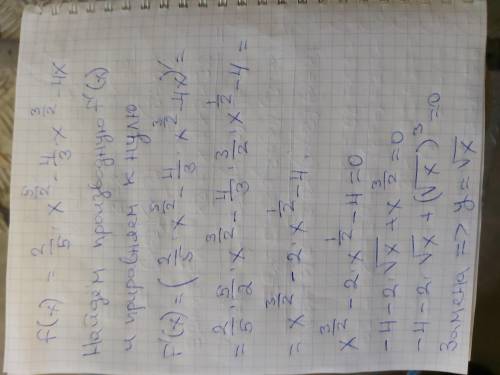 f(x) = 2/5 · x^(5/2) - 4/3 · x^(3/2) - 4x
Найдем производную f'(x)
и приравняем к нулю
f'(x) = (2/5 · x^(5/2) - 4/3 · x^(3/2) - 4x)' =
= 2/5 · 5/2 · x^(3/2) - 4/3 · 3/2 · x^(1/2) - 4 =
= x^(3/2) - 2 · x^(1/2) - 4.
x^(3/2) - 2x^(1/2) - 4 = 0
-4 - 2√x + x^(3/2) = 0
-4 - 2·√x + (√x)^3 = 0
Замена => y = √x